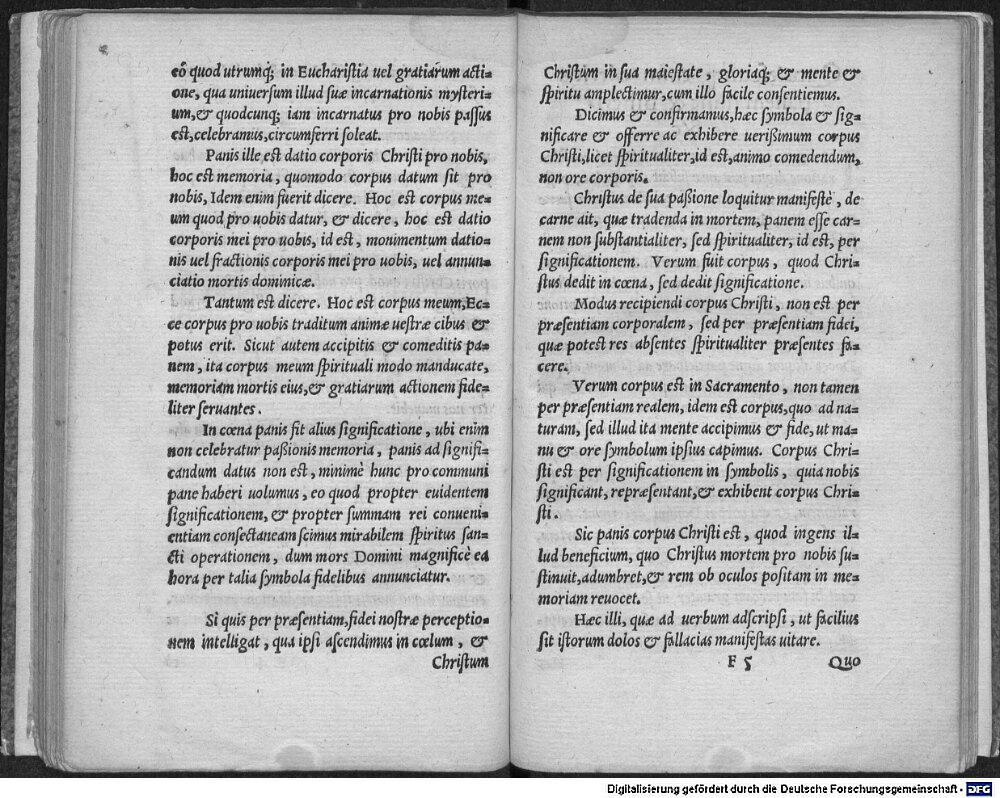 eò quod utrumq́; in Eucharistia uel gratiarum acti=
one, qua universum illud suæ incarnationis mysteri=
um,& quodcunq; iam incarnatus pro nobis passus
est,celebramus,circumferri soleat.
Panis ille est datio corporis Christi pro nobis,
hoc est memoria, quomodo corpus datum sit pro
nobis, Idem enim fuerit dicere. Hoc est corpus me=
um quod pro uobis datur, & dicere, hoc est datio
corporis mei pro uobis, id est, monimentum datio=
nis uel fractionis corporis mei pro uobis, uel annun=
ciatio mortis dominicæ.
Tantum est dicere. Hoc est corpus meum,Ec=
ce corpus pro uobis traditum animæ uestræ cibus &
potus erit. Sicut autem accipitis & comeditis pa=
nem, ita corpus meum spirituali modo manducate,
memoriam mortis eius,& gratiarum actionem fide=
liter seruantes.
In cœna panis fit alius significatione, ubi enim
non celebratur paßionis memoria, panis ad signifi=
candum datus non est, minimè hunc pro communi
pane haberi uolumus, eo quod propter euidentem
significationem, & propter summam rei conueni=
entiam consectaneam scimus mirabilem spiritus san=
cti operationem, dum mors Domini magnificè ea
hora per talia symbola fidelibus annunciatur.
Si quis per præsentiam,fidei nostræ perceptio=
nem intelligat, qua ipsi ascendimus in cœlum, &
Christum
Christum in sua maiestate, gloriaq́; & mente &
spiritu amplectimur,cum illo facile consentiemus.
Dicimus & confirmamus,hæc symbola & sig=
nificare & offerre ac exhibere uerißimum corpus
Christi,licet spiritualiter,id est,animo comedendum,
non ore corporis.
Christus de sua paßione loquitur manifestè, de
carne ait, quæ tradenda in mortem, panem esse car=
nem non substantialiter, sed spiritualiter, id est, per
significationem. Verum fuit corpus, quod Chri=
stus dedit in cœna, sed dedit significatione.
Modus recipiendi corpus Christi, non est per
præsentiam corporalem, sed per præsentiam fidei,
quæ potest res absentes spiritualiter præsentes fa=
cere.
Verum corpus est in Sacramento, non tamen
per præsentiam realem, idem est corpus,quo ad na=
turam, sed illud ita mente accipimus & fide, ut ma=
nu & ore symbolum ipsius capimus. Corpus Chri=
sti est per significationem in symbolis, quia nobis
significant, repræsentant,& exhibent corpus Chri=
sti.
Sic panis corpus Christi est, quod ingens il=
lud beneficium, quo Christus mortem pro nobis su=
stinuit,adumbret,& rem ob oculos positam in me=
moriam reuocet.
Hæc illi, quæ ad uerbum adscripsi, ut facilius
sit istorum dolos & fallacias manifestas uitare.
F 5 Quo
Digitalisierung gefördert durch die Deutsche Forschungsgemeinschaft - DFG